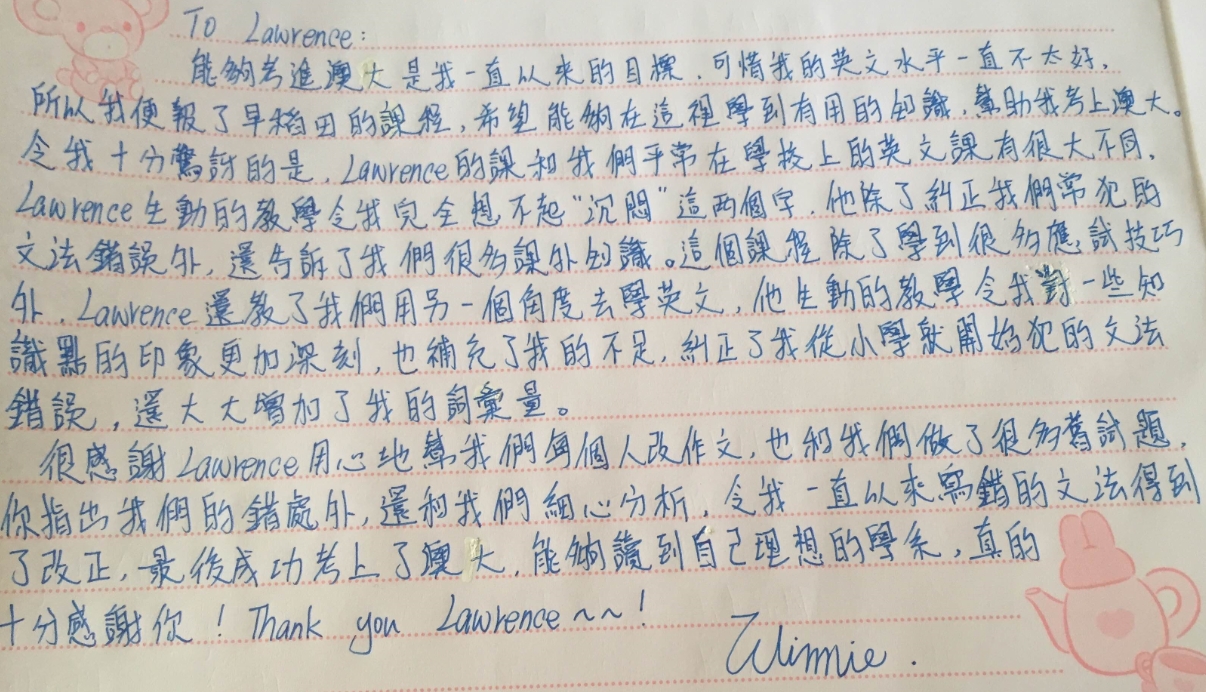 To Lawrence:
能夠考進澳大是我一直以來的目標，可惜我的英文水平一直不太好，
所以我便報了早稻田的課程，希望能夠在這裡學到有用的知識，幫助我考上澳大。
令我十分驚訝的是，Lawrence的課和我們平常在學校上的英文課有很大不同，
Lawrence生動的教學令我完全想不起“沉悶”這兩個字，他除了糾正我們常犯的
文法錯誤外，還告訴了我們很多課外知識。這個課程除了學到很多應試技巧
外，Lawrence還教了我們用另一個角度去學英文，他生動的教學令我對一些知
識點的印象更加深刻，也補充了我的不足，糾正了我從小學就開始犯的文法
錯誤，還大大增加了我的詞彙量。
很感謝Lawrence用心地幫我們每個人改作文，也和我們做了很多舊試題，
你指出我們的錯處外，還和我們細心分析，令我一直以來寫錯的文法得到
了改正，最後成功考上了澳大，能夠讀到自己理想的學系，真的
十分感謝你！Thank you Lawrence~~！
Winnie.